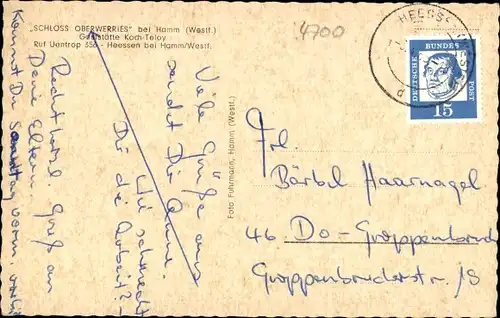 „SCHLOSS OBERWERRIES" bei Hamm (Westf.)
Gaststätte Koch-Teloy
Ruf Uentrop 356 - Heessen bei Hamm/Westf.
4700
HEESSEN
DEUTSCHE BUNDESPOST
15
Foto Fuhrmann, Hamm (Westf.)
Viele Grüße aus
sendet Dir Anne.
Wie schmeckt
Dir die Arbeit? –
Recht herzl. Gruß an
Deine Eltern.
Kommst Du Sonntag vorm.
Frl.
Bärbel Haarnagel
46 Do-Groppenbruch
Groppenbrucherstr. 19